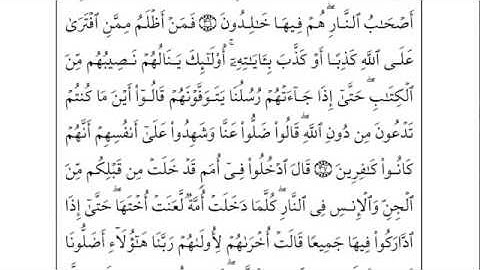 أَصْحَٰبُ ٱلنَّارِ ۖ هُمْ فِيهَا خَٰلِدُونَ ۝٣٦ فَمَنْ أَظْلَمُ مِمَّنِ ٱفْتَرَىٰ
عَلَى ٱللَّهِ كَذِبًا أَوْ كَذَّبَ بِـَٔايَٰتِهِۦٓ ۚ أُو۟لَٰٓئِكَ يَنَالُهُمْ نَصِيبُهُم مِّنَ
ٱلْكِتَٰبِ ۖ حَتَّىٰٓ إِذَا جَآءَتْهُمْ رُسُلُنَا يَتَوَفَّوْنَهُمْ قَالُوٓا۟ أَيْنَ مَا كُنتُمْ
تَدْعُونَ مِن دُونِ ٱللَّهِ ۖ قَالُوا۟ ضَلُّوا۟ عَنَّا وَشَهِدُوا۟ عَلَىٰٓ أَنفُسِهِمْ أَنَّهُمْ
كَانُوا۟ كَٰفِرِينَ ۝٣٧ قَالَ ٱدْخُلُوا۟ فِىٓ أُمَمٍ قَدْ خَلَتْ مِن قَبْلِكُم مِّنَ
ٱلْجِنِّ وَٱلْإِنسِ فِى ٱلنَّارِ ۖ كُلَّمَا دَخَلَتْ أُمَّةٌ لَّعَنَتْ أُخْتَهَا ۖ حَتَّىٰٓ إِذَا
ٱدَّارَكُوا۟ فِيهَا جَمِيعًا قَالَتْ أُخْرَىٰهُمْ لِأُولَىٰهُمْ رَبَّنَا هَٰٓؤُلَآءِ أَضَلُّونَا